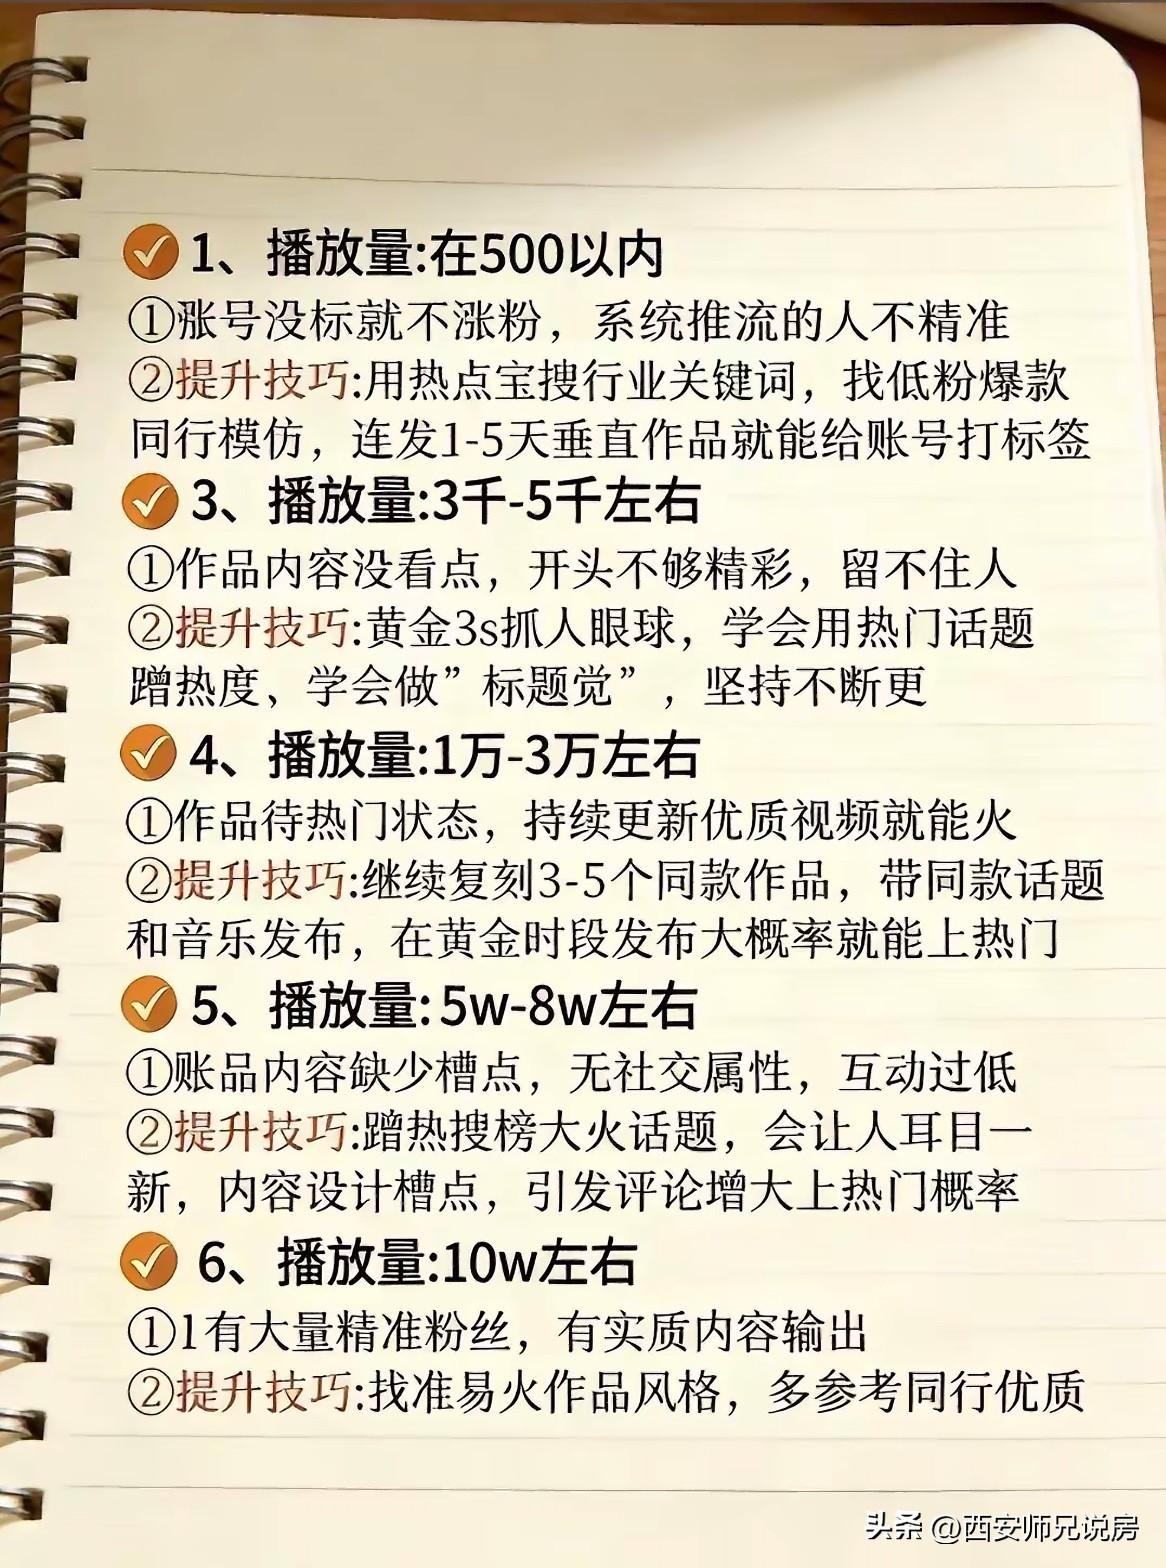 1、播放量:在500以内
①账号没标就不涨粉，系统推流的人不精准
②提升技巧:用热点宝搜行业关键词，找低粉爆款
同行模仿，连发1-5天垂直作品就能给账号打标签
3、播放量:3千-5千左右
①作品内容没看点，开头不够精彩，留不住人
②提升技巧:黄金3s抓人眼球，学会用热门话题
蹭热度、学会做”标题觉”，坚持不断更
4、播放量:1万-3万左右
①作品待热门状态，持续更新优质视频就能火
②提升技巧:继续复刻3-5个同款作品，带同款话题
和音乐发布，在黄金时段发布大概率就能上热门
5、播放量:5w-8w左右
①账品内容缺少槽点，无社交属性，互动过低
②提升技巧:蹭热搜榜大火话题，会让人耳目一
新，内容设计槽点，引发评论增大上热门概率
6、播放量:10w左右
①1有大量精准粉丝，有实质内容输出
②提升技巧:找准易火作品风格，多参考同行优质
头条 @西安师兄说房